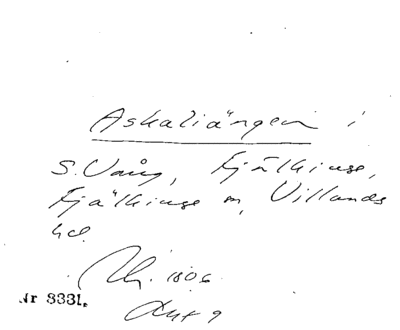 Askaliängen i
S. Vång, Fjälkinge,
Fjälkinge sn, Villands
hd.
1806
Nr 3331.
Akt 9